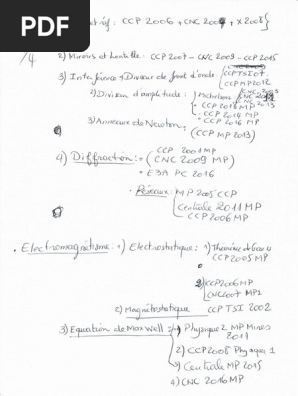 PDF
CCP 2006 + CNC 2007 + X 2008}
2) Miroirs et Lentille : CCP 2007 - CNC 2009 - CCP 2015
3) Interférence + Diviseur de front d'onde
CCP TSI 07
CCP MP 2012
2) Division d'amplitude : Michelson
CNC 2013
CCP 2013 MP
CCP 2014 MP
CCP 2016 MP
3) Anneaux de Newton :
(CCP MP 2013)
4) Diffraction :
CCP 2001 MP
CNC 2009 MP
• E3A PC 2016
- Réseaux : MP 2005 CCP
Centrale 2011 MP
CCP 2006 MP
• Electromagnétisme : 1) Electrostatique : 1) Théorème de Gauss
CCP 2005 MP
2) CCP 2006 MP
CNC 2007 MP1
2) Magnétostatique CCP TSI 2002
3) Equation de Maxwell : 1) Physique 2 MP Mines
2011
2) CCP 2008 Physique 1
3) Centrale MP 2015
4) CNC 2016 MP